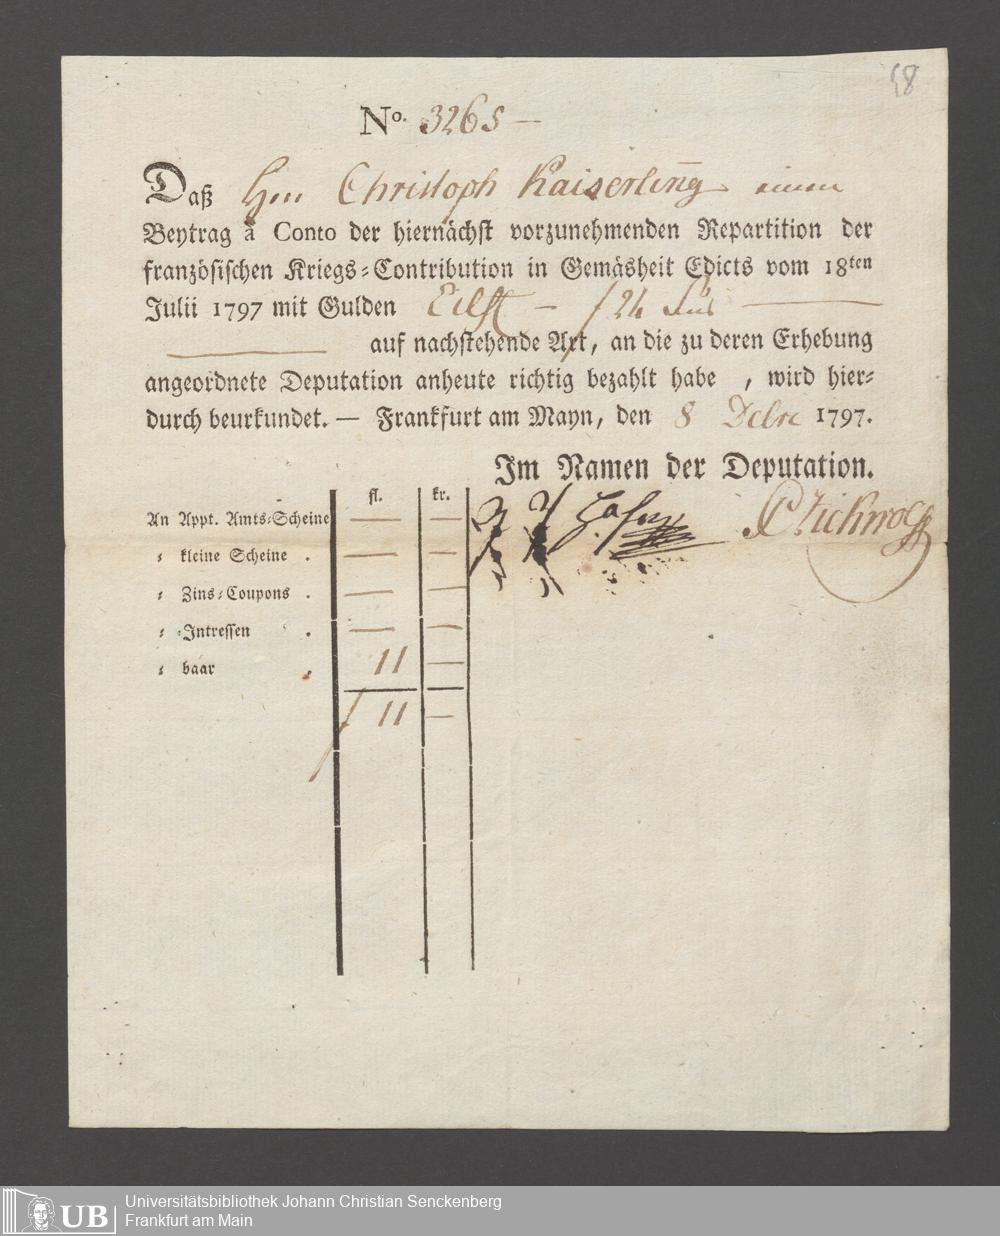 58
No. 3265 —
Daß Hrn Christoph Kaiserling einen
Beytrag à Conto der hiernächst vorzunehmenden Repartition der
französischen Kriegs-Contribution in Gemäsheit Edicts vom 18ten
Julii 1797 mit Gulden Eilff — f 24 fus
auf nachstehende Art, an die zu deren Erhebung
angeordnete Deputation anheute richtig bezahlt habe , wird hier-
durch beurkundet. — Frankfurt am Mayn, den 8 Debre 1797.
Im Namen der Deputation.
fl. kr.
An Appt. Amts-Scheine — —
kleine Scheine . — —
Zins-Coupons . — —
Intressen . — —
baar . 11 —
f 11 —
UB
Universitätsbibliothek Johann Christian Senckenberg
Frankfurt am Main